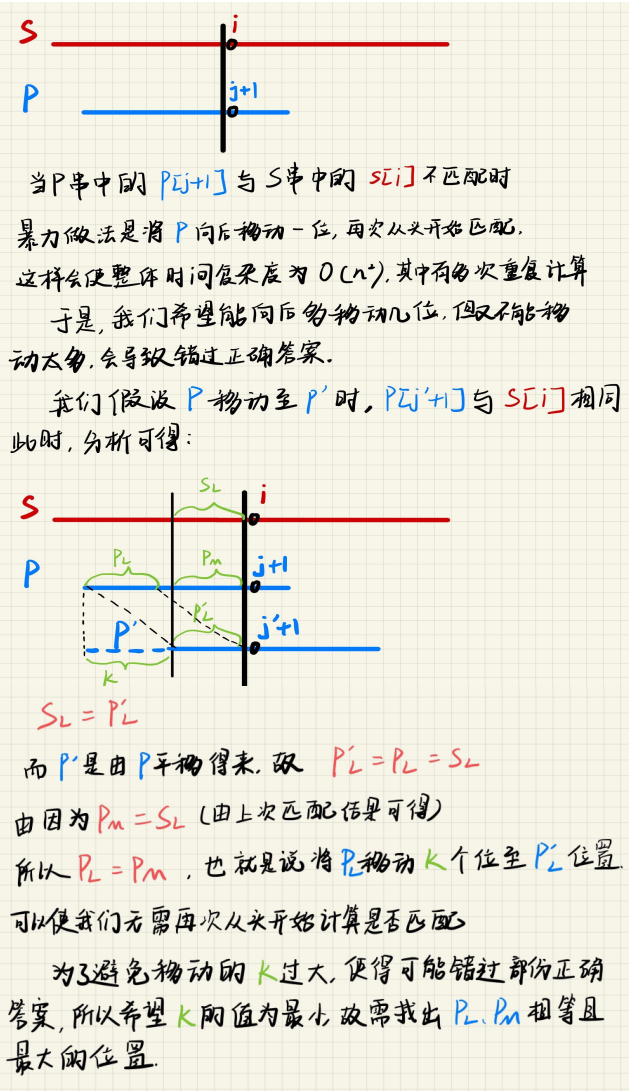 S
i
P
j+1
当P串中的 P[j+1] 与 S串中的 S[i] 不匹配时
暴力做法是将 P 向后移动一位, 再次从头开始匹配.
这样会使整体时间复杂度为 O(n²), 其中有多次重复计算
于是, 我们希望能向后多移动几位, 但又不能移
动太多, 会导致错过正确答案.
我们假设 P 移动至 P' 时, P[j'+1] 与 S[i] 相同
此时, 分析可得:
SL
S
i
PL
Pm
P
j+1
P'L
P'
j'+1
K
SL = P'L
而 P' 是由 P 平移得来, 故 P'L = PL = SL
由因为 Pm = SL (由上次匹配结果可得)
所以 PL = Pm , 也就是说将 PL 移动 K 个位至 P'L 位置.
可以使我们无需再次从头开始计算是否匹配
为了避免移动的 K 过大, 使得可能错过部份正确
答案, 所以希望 K 的值为最小, 故需找出 PL、Pm 相等且
最大的位置.